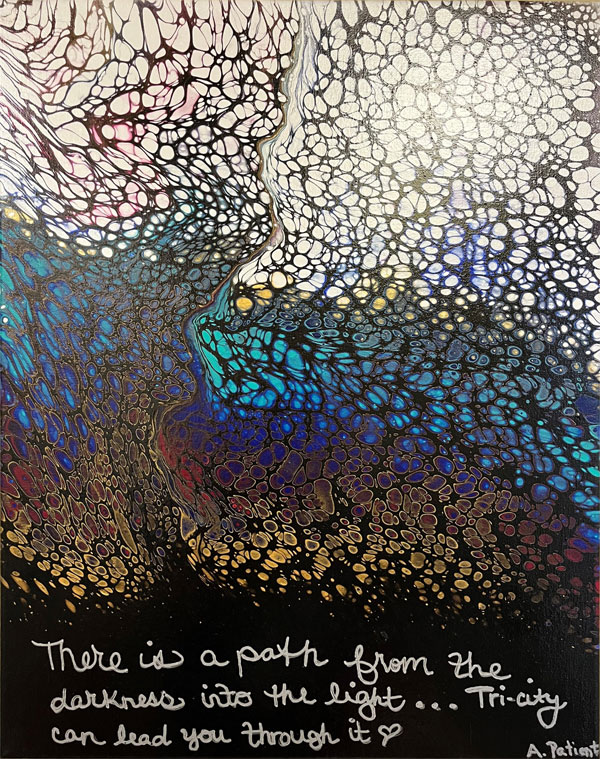 There is a path from the
darkness into the light... Tri-city
can lead you through it ♡
A. Patient